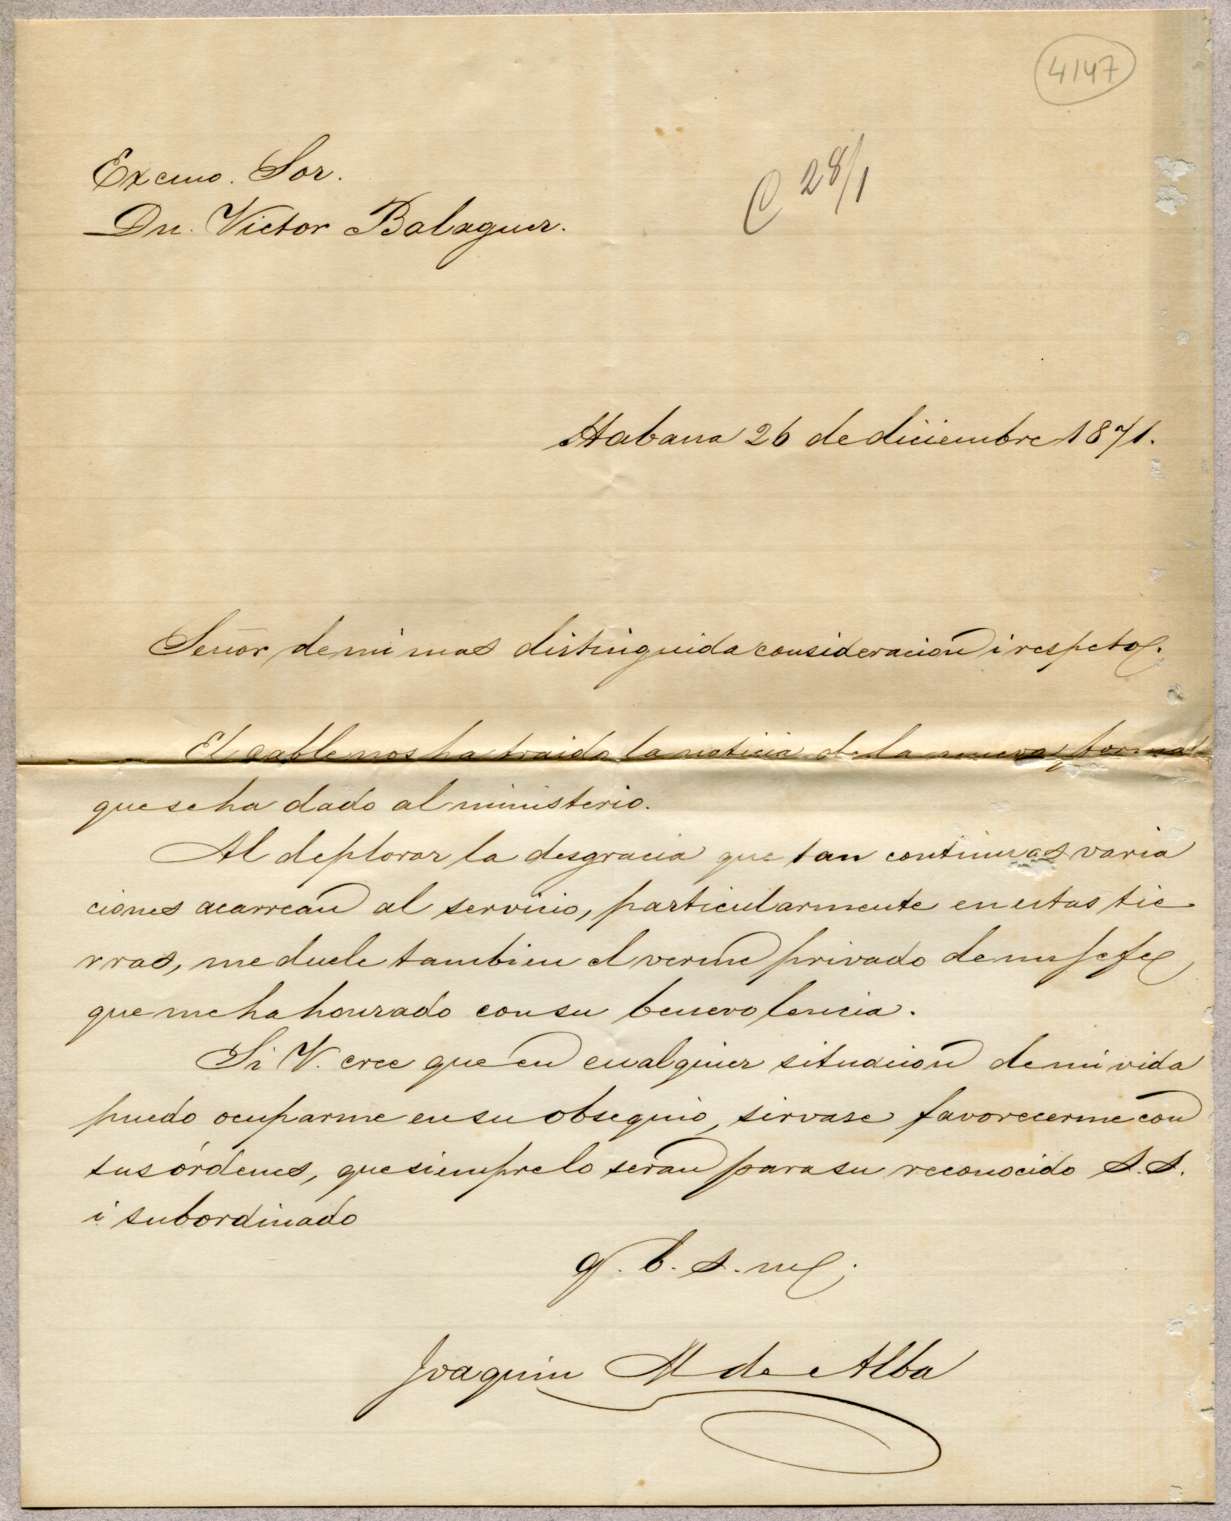 4147
Excmo. Sor.
Dn. Victor Balaguer.
C 28/1
Habana 26 de diciembre 1871.
Señor de mi mas distinguida consideracion i respeto.
El cable nos ha traido la noticia de la nueva forma
que se ha dado al ministerio.
Al deplorar la desgracia que tan continuas varia
ciones acarrean al servicio, particularmente en estas tie-
rras, me duele tambien el verme privado de un jefe,
que me ha honrado con su benevolencia.
Si V. cree que en cualquier situacion de mi vida
puedo ocuparme en su obsequio, sirvase favorecerme con
sus órdenes, que siempre lo seran para su reconocido S. S.
i subordinado
q. b. s. m;
Joaquin M de Alba